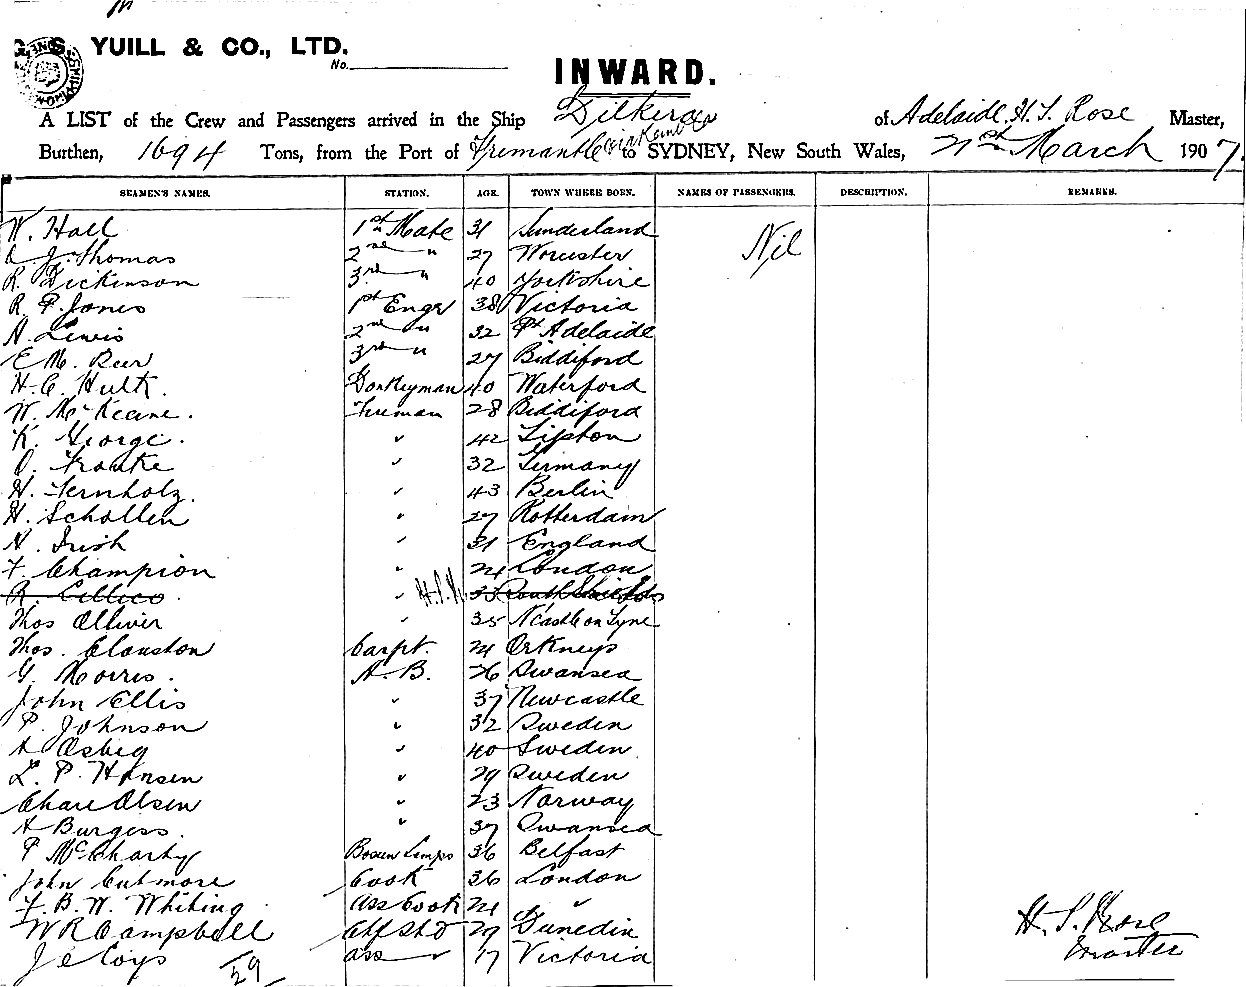 G. S. YUILL & CO., LTD.
No.
INWARD.
A LIST of the Crew and Passengers arrived in the Ship Dilkera of Adelaide, H. S. Rose Master,
Burthen, 1694 Tons, from the Port of Fremantle via to SYDNEY, New South Wales, 21st March 1907.
SEAMEN'S NAMES. STATION. AGE. TOWN WHERE BORN. NAMES OF PASSENGERS. DESCRIPTION. REMARKS.
W. Hall 1st Mate 31 Sunderland Nil
J. Thomas 2nd " 27 Worcester
R. Dickinson 3rd " 40 Yorkshire
R. P. Jones 1st Engr 38 Victoria
A. Lewis 2nd " 32 Pt Adelaide
E. M. Beer 3rd " 27 Biddiford
H. C. Hult. Donkeyman 40 Waterford
W. McKeane. Fireman 28 Biddiford
K. George. " 42 Lipton
O. Franke " 32 Germany
H. Fernholz. " 43 Berlin
H. Schollen " 27 Rotterdam
A. Irish " 31 England
F. Champion " 24 London
R. Cillico. " H.S.R. 33 South Shields
Thos Olliver " 35 N'castle on Tyne
Thos. Clouston Carpt. 24 Orkneys
G. Morris. A.B. 26 Swansea
John Ellis " 37 Newcastle
P. Johnson " 32 Sweden
A Osberg " 40 Sweden
L. P. Hansen " 29 Sweden
Chare Olsen " 23 Norway
A Burgess. " 37 Swansea
P McCharty Bosun Lamps 36 Belfast
John Cutmore Cook 36 London
F. B. W. Whiting Ass Cook 24 "
W R Campbell Chf Std 27 Dunedin
J C Coys Ass " 17 Victoria
29
H. S. Rose
Master